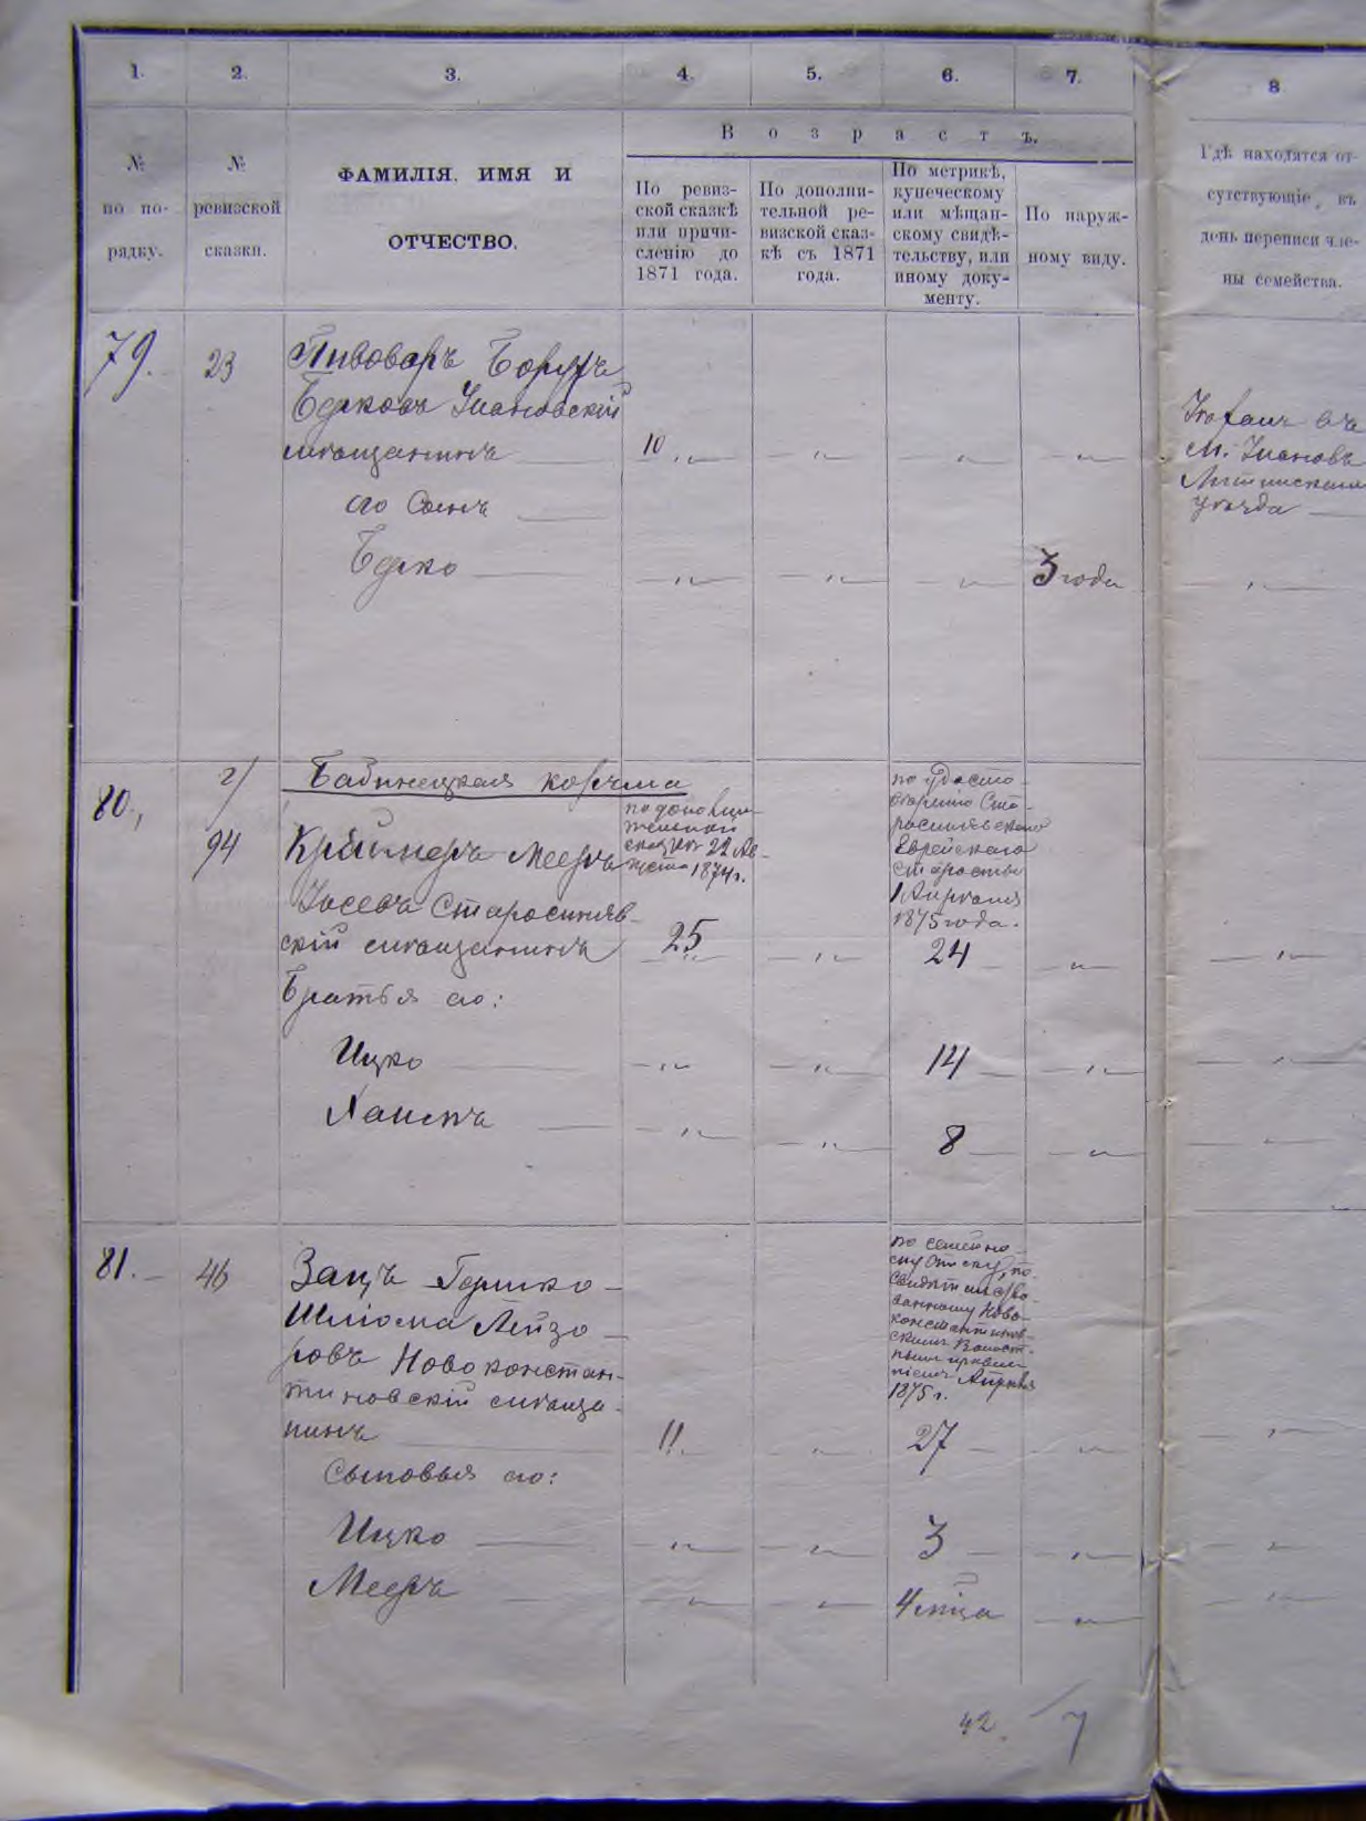 1. 2. 3. 4. 5. 6. 7. 8
Возрастъ.
№ по по-
рядку.
№
ревизской
сказки.
ФАМИЛІЯ, ИМЯ И
ОТЧЕСТВО.
По ревиз-
ской сказкѣ
или причи-
сленію до
1871 года.
По дополни-
тельной ре-
визской сказ-
кѣ съ 1871
года.
По метрикѣ,
купеческому
или мѣщан-
скому свидѣ-
тельству, или
иному доку-
менту.
По наруж-
ному виду.
Гдѣ находятся от-
сутствующіе, въ
день переписи чле-
ны семейства.
79. 23 Пивоваръ Борухъ
Берковъ Улановскій
мѣщанинъ 10 „ „ „ „
его Сынъ
Берко „ „ „ 3 года „
въ
м. Улановъ
Литинскаго
уѣзда
г/ Бабинецкая корчма
80., 94 Краймеръ Мееръ
Іосевъ Старосиняв-
скій мѣщанинъ 25 „ 24 „ „
по дополни-
тельной
сказкѣ 22 Ав-
густа 1874 г.
по удосто-
веренію Ста-
росинявскаго
Еврейскаго
старосты
1 Апрѣля
1875 года.
Братья его:
Ицко „ „ 14 „ „
Хаимъ „ „ 8 „ „
81. 46 Зацъ Гершко-
Шліома Лейзо-
ровъ Новоконстан-
тиновскій мѣща-
нинъ 11. „ 27 „ „
по семейно-
му списку, по
свидѣтельство-
ванному Ново-
константинов-
скимъ Волост-
нымъ правле-
ніемъ Апрѣля
1875 г.
Сыновья его:
Ицко „ „ 3 „ „
Мееръ „ „ 4 мѣца „ „
42. 7